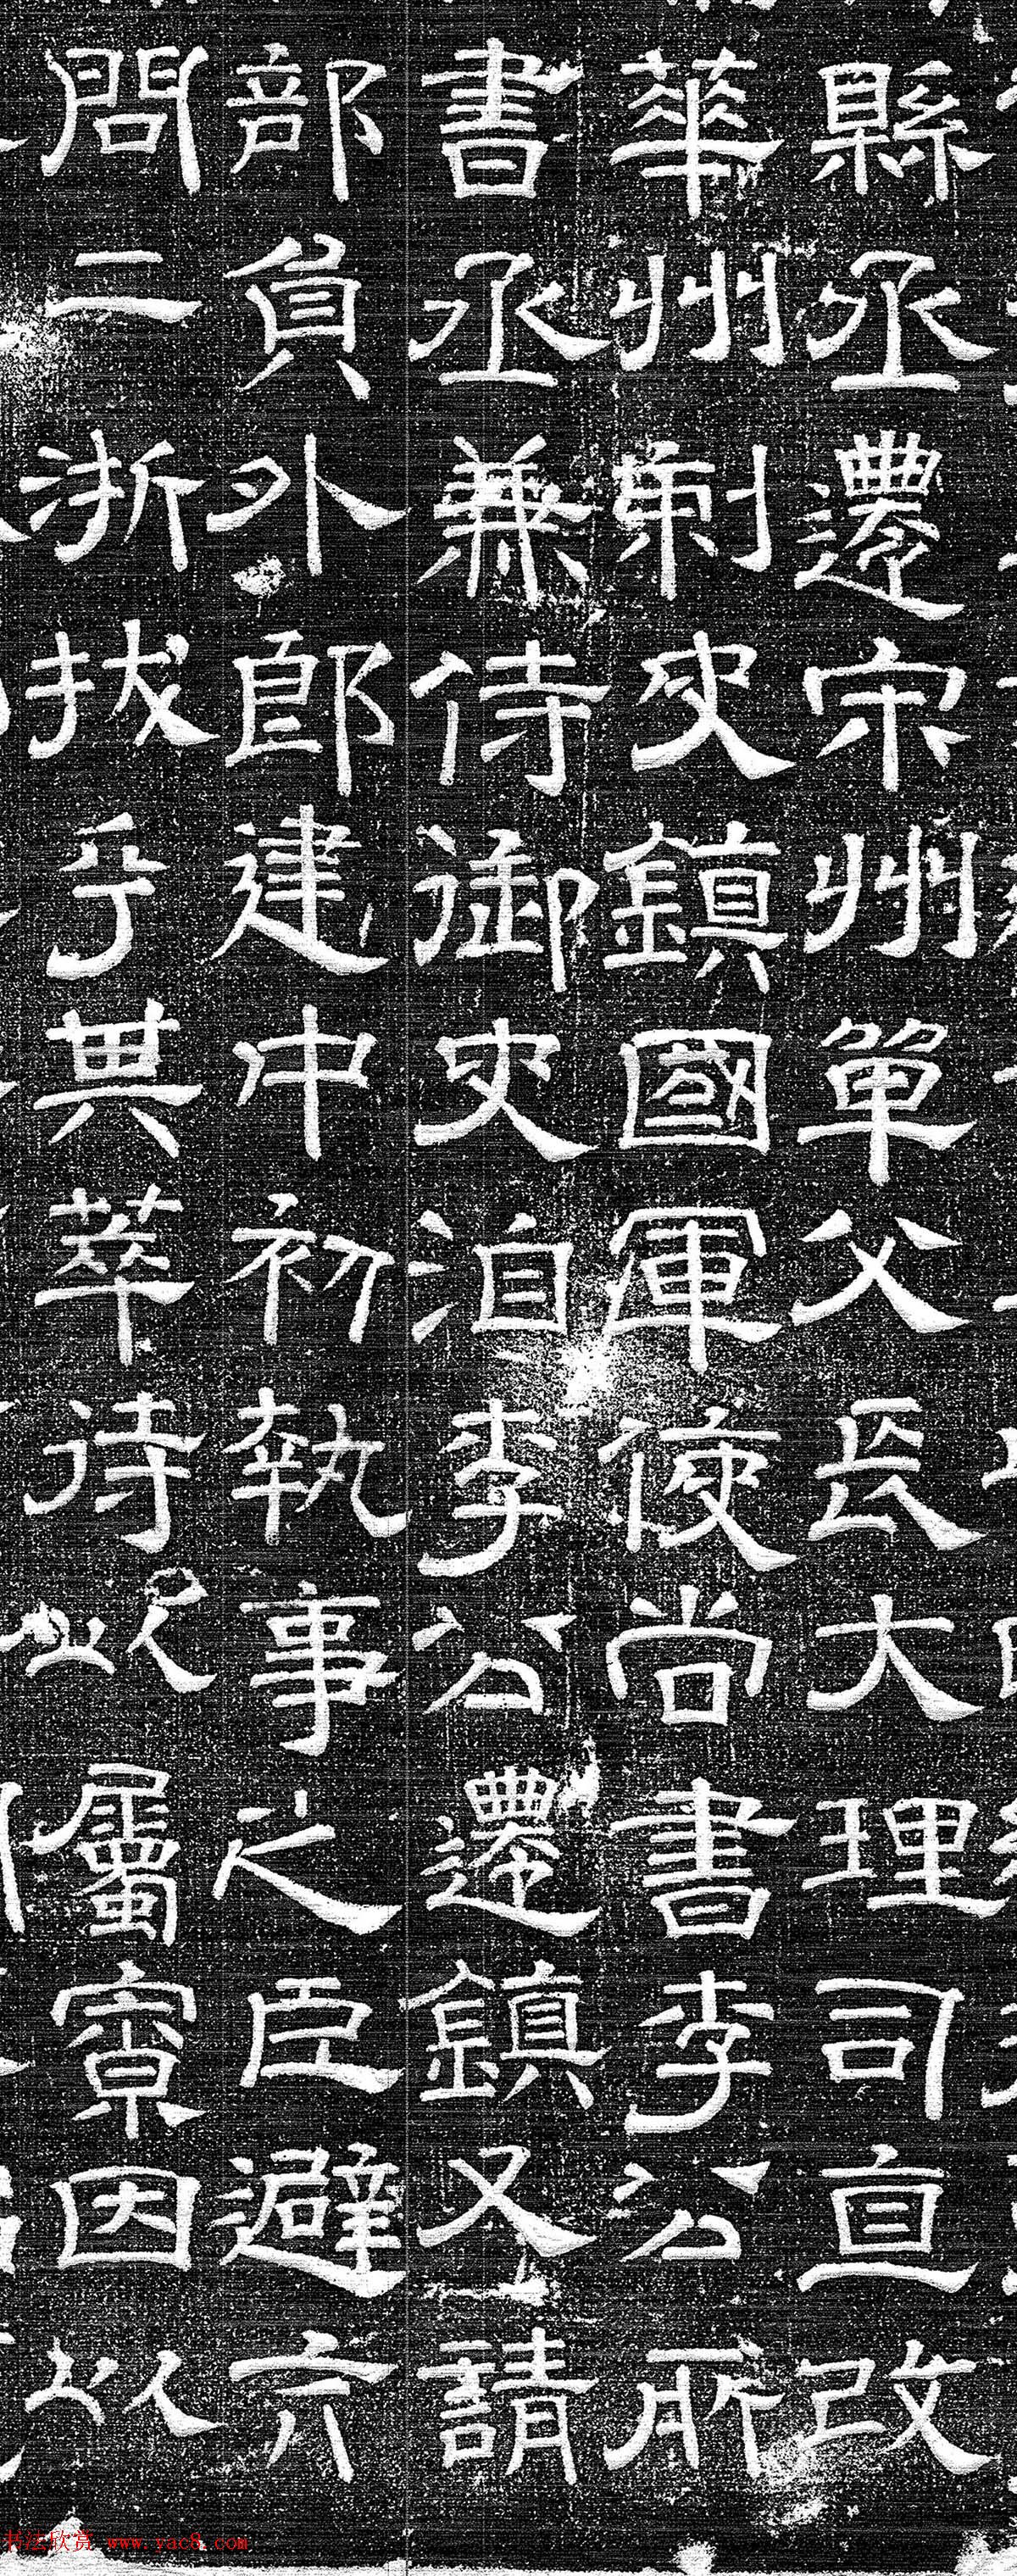 縣丞遷宋州單父長大理司直改
華州刺史鎮國軍使尚書李公所
書丞兼侍御史洎李公遷鎮又請
部員外郎建中初執事之臣避六
問二浙拔乎其萃待以屬寮因以
书法欣赏 www.yac8.com